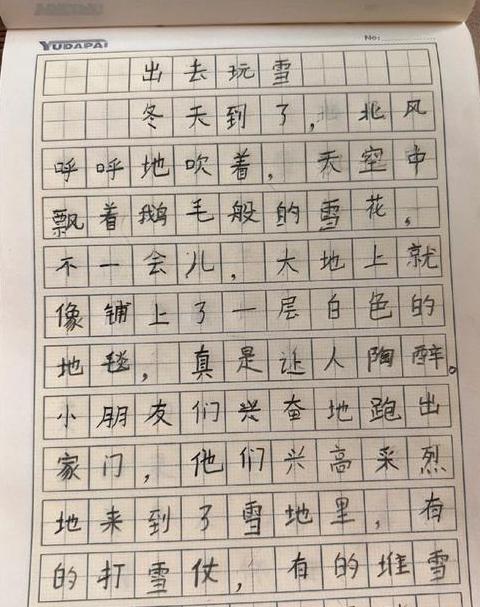 YUDAPAI No:
出去玩雪
冬天到了，北风
呼呼地吹着，天空中
飘着鹅毛般的雪花，
不一会儿，大地上就
像铺上了一层白色的
地毯，真是让人陶醉。
小朋友们兴奋地跑出
家门，他们兴高采烈
地来到了雪地里，有
的打雪仗，有的堆雪